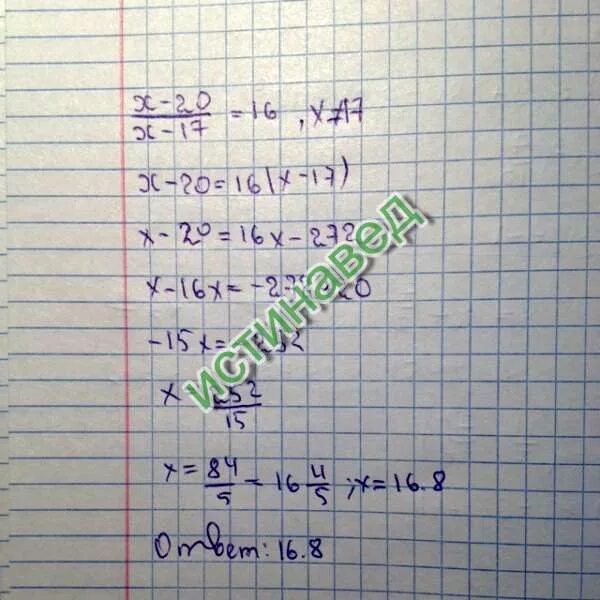 x-20/x-17 = 16 , x≠17
x-20=16(x-17)
x-20=16x-272
x-16x=-272+20
-15x=-252
x=252/15
x=84/5=16 4/5;x=16.8
Ответ:16.8
ИСТИНАВЕД